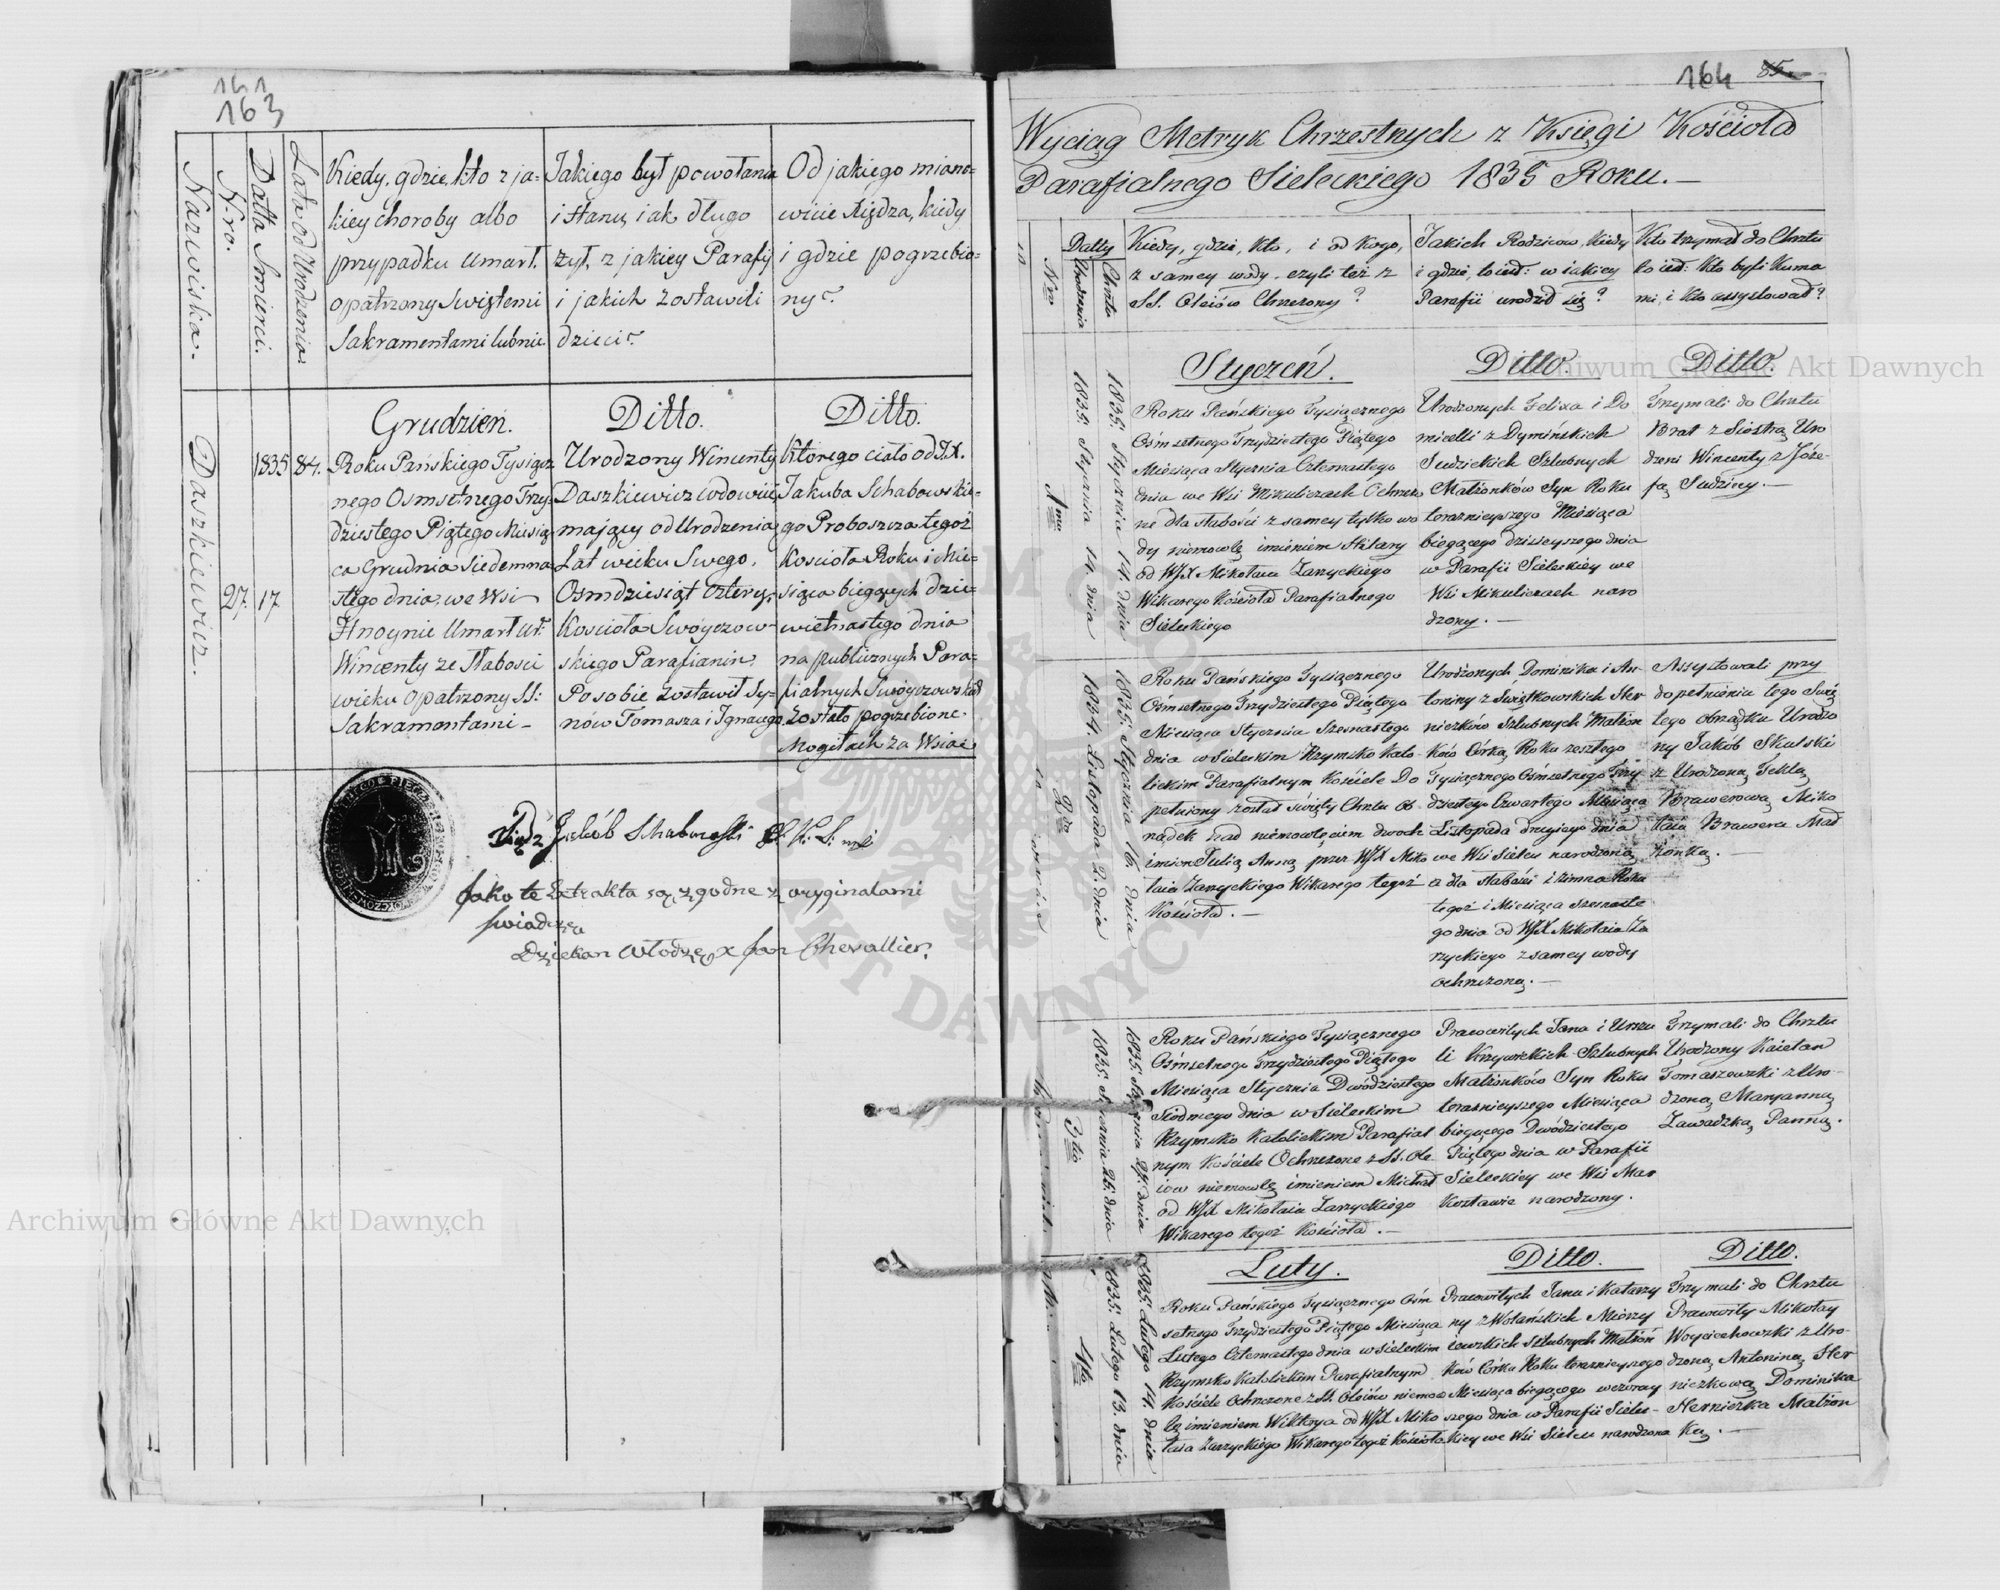 161
163
Nazwiska.
Nro.
Datta Smierci.
Lata od Urodzenia.
Kiedy, gdzie, kto z ja-
kiey choroby albo
przypadku umarł.
opatrzony Swiętemi
Sakramentami lub nie
Jakiego był powołania
i stanu, iak długo
żył, z jakiey Parafij
i jakich zostawił
dzieci?
Od jakiego miano-
wicie Xiędza, kiedy
i gdzie pogrzebio-
ny?
Daszkiewicz.
27.
1835
17
84.
Grudzień.
Roku Pańskiego Tysiącz
nego Osmsetnego Trzy-
dziestego Piątego Miesią
ca Grudnia Siedemna
stego dnia, we Wsi
Hnoynie Umarł Ur:
Wincenty ze Słabosci
wieku opatrzony SS:
Sakramentami –
Ditto.
Urodzony Wincenty
Daszkiewicz wdowiec
mający od Urodzenia
Lat wieku Swego,
Osmdziesiąt Cztery,
Kosciola Swoyczow-
skiego Parafianin.
Po sobie zostawił Sy-
nów Tomasza i Ignacego
Ditto.
Którego ciało od J.X.
Jakuba Schabowskie-
go Proboszcza tegoż
Kosciola Roku i Mie-
siąca bieżących dzie-
wietnastego dnia
na publicznych Para-
fialnych Swoyczowskich
Zostało pogrzebione.
Mogiłach za Wsią
Xiądz Jakób Schabowski
Jako te Extrakta są zgodne z oryginałami
świadczę
Dziekan Włodz. X Jan Chevallier.
164 85.
Wyciąg Metryk Chrzestnych z Księgi Kościoła
Parafialnego Sieleckiego 1835 Roku. –
Nro
Datty
Urodzenia
Chrztu
Kiedy, gdzie, kto, i od kogo,
z samey wody, czyli też z
SS. Oleiów Chrzczony?
Jakich Rodziców, kiedy
i gdzie, to iest: w iakiey
Parafii urodził się?
Kto trzymał do Chrztu
to iest: kto byli Kuma
mi, i kto assystował?
1mo
1835. Stycznia 14. dnia
1835. Stycznia 14. dnia
Styczeń.
Roku Pańskiego Tysiącznego
Ośmsetnego Trzydziestego Piątego
Miesiąca Stycznia Czternastego
dnia we Wsi Mikuliczach Ochrzczo
ne dla słabości z samey tylko wo
dy niemowlę imieniem Hilary
od WJX Mikołaia Zarzyckiego
Wikarego Kościoła Parafialnego
Sieleckiego
Ditto.
Urodzonych Felixa i Do
micelli z Dymińskich
Sudzickich Szlubnych
Małżonków Syn Roku
teraznieyszego Miesiąca
biegącego dzisieyszego dnia
w Parafii Sieleckiey we
Wsi Mikuliczach naro
dzony. –
Ditto.
Trzymali do Chrztu
Brat z Siostrą Uro
dzeni Wincenty z Józe-
fą Sudziccy. –
2do
1834. Listopada 2. dnia
1835. Stycznia 16. dnia
Roku Pańskiego Tysiącznego
Ośmsetnego Trzydziestego Piątego
Miesiąca Stycznia Szesnastego
dnia w Sieleckim Rzymsko Kato
lickim Parafialnym Kościele Do
pełniony został święty Chrztu ob
rządek nad niemowlęciem dwoch
imion Julią Anną, przez WJX Miko
łaia Zarzyckiego Wikarego tegoż
Kościoła. –
Urodzonych Dominika i An-
toniny z Świątkowskich Her
niczków Szlubnych Małżon
ków Córka, Roku zeszłego
Tysiącznego Ośmsetnego Trzy
dziestego Czwartego Miesiąca
Listopada drugiego dnia
we Wsi Sielcu narodzona,
a dla słabości i zimna Roku
tegoż i Miesiąca szesnaste
go dnia od WJX Mikołaia Za
rzyckiego z samey wody
ochrzczona. –
Assystowali przy
dopełnieniu tego Swię
tego obrządku Urodzo
ny Jakób Skulski
z Urodzoną Teklą
Brawerową Miko
łaia Brawera Mał
żonką. –
3tio
1835. Stycznia 25. dnia
1835. Stycznia 27. dnia
Roku Pańskiego Tysiącznego
Ośmsetnego Trzydziestego Piątego
Miesiąca Stycznia Dwódziestego
Siódmego dnia w Sieleckim
Rzymsko Katolickim Parafial
nym Kościele Ochrzczone z SS. Ole
iów niemowlę imieniem Michał
od WJX Mikołaia Zarzyckiego
Wikarego tegoż Kościoła. –
Pracowitych Jana i Urszu
li Krzywickich Szlubnych
Małżonków Syn Roku
teraznieyszego Miesiąca
biegącego Dwódziestego
Piątego dnia w Parafii
Sieleckiey we Wsi Mar
kostawie narodzony.
Trzymali do Chrztu
Urodzony Kaietan
Tomaszewski z Uro-
dzoną Maryanną
Zawadzką Panną.
4to
1835. Lutego 13. dnia
1835. Lutego 14. dnia
Luty.
Roku Pańskiego Tysiącznego Ośm
setnego Trzydziestego Piątego Miesiąca
Lutego Czternastego dnia w Sieleckim
Rzymsko Katolickim Parafialnym
Kościele Ochrzczone z SS. Oleiów niemow
lę imieniem Wiktorya od WJX Miko
łaia Zarzyckiego Wikarego tegoż Kościoła
Ditto.
Pracowitych Jana i Katarzy
ny z Wolańskich Mierzy
iewskich Szlubnych Małżon
ków Córka Roku teraznieyszego
Miesiąca biegącego wczoray
szego dnia w Parafii Sielec-
kiey we Wsi Sielcu narodzona
Ditto.
Trzymali do Chrztu
Pracowity Mikołay
Woyciechowski z Uro-
dzoną Antoniną Her
niczkową Dominika
Herniczka Małżon
ką. –
Archiwum Główne Akt Dawnych
Archiwum Główne Akt Dawnych